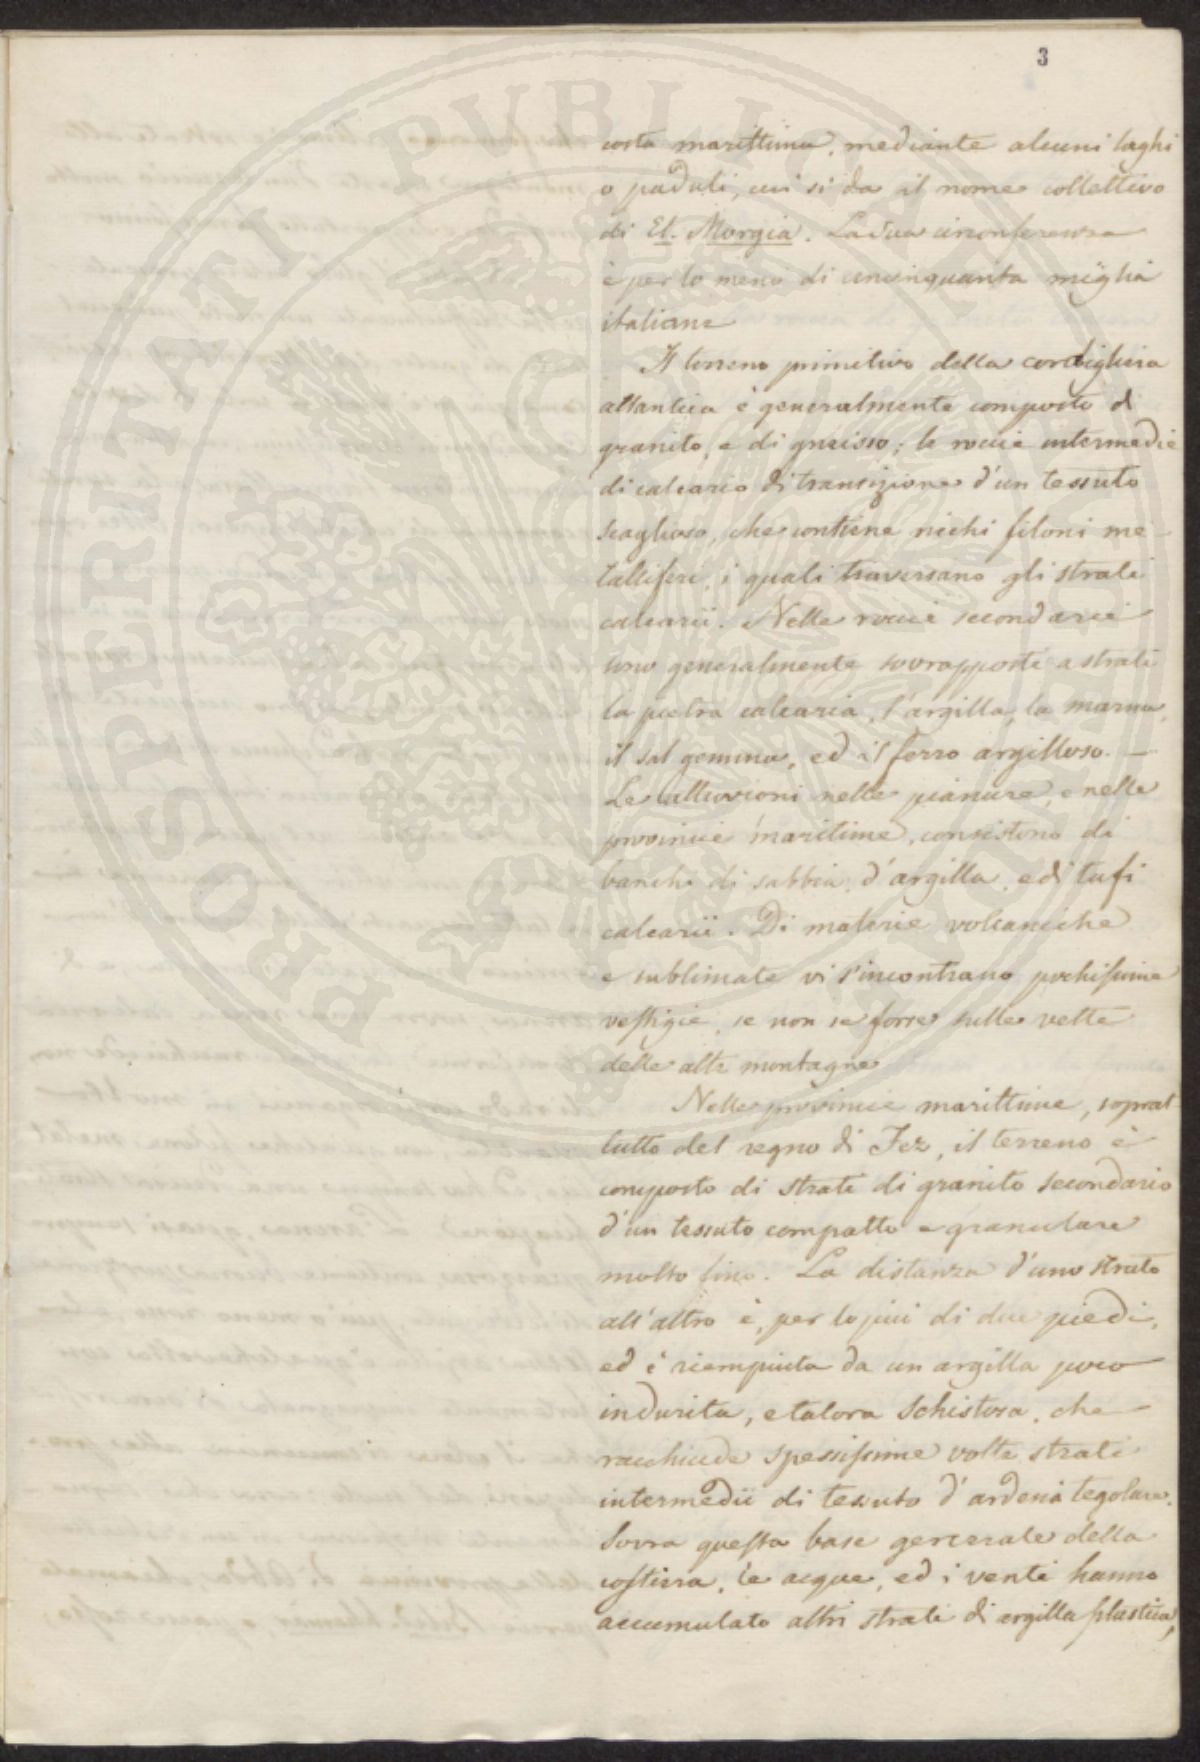 3
costa marittima, mediante alcuni laghi
o paduli, cui si da il nome collettivo
di El. Morgia. La sua circonferenza
è per lo meno di cencinquanta miglia
italiane
Il terreno primitivo della cordigliera
atlantica è generalmente composto di
granito, e di gneisso; le roccie intermedie
di calcario di transizione d'un tessuto
scaglioso, che contiene ricchi filoni me-
talliferi, i quali traversano gli strati
calcarii. Nelle roccie secondarie
sono generalmente sovrapposte a strati
la pietra calcaria, l'argilla, la marna,
il sal gemma, ed il ferro argilloso. —
Le alluvioni nelle pianure, e nelle
provincie maritime, consistono di
banchi di sabbia, d'argilla, e di tufi
calcarii. Di materie volcaniche
e sublimate vi s'incontrano pochissime
vestigie, se non se forse sulle vette
delle alte montagne
Nelle provincie marittime, soprat-
tutto del regno di Fez, il terreno è
composto di strati di granito secondario
d'un tessuto compatto e granulare
molto fino. La distanza d'uno strato
all'altro è, per lo più di due piedi,
ed è riempiuta da un argilla poco
indurita, e talora schistosa, che
racchiude spessissime volte strati
intermedii di tessuto d'ardesia tegolare.
Sovra questa base generale della
costiera, le acque, ed i venti hanno
accumulato altri strati di argilla plastica,
PROSPERITATI PVBLICAE